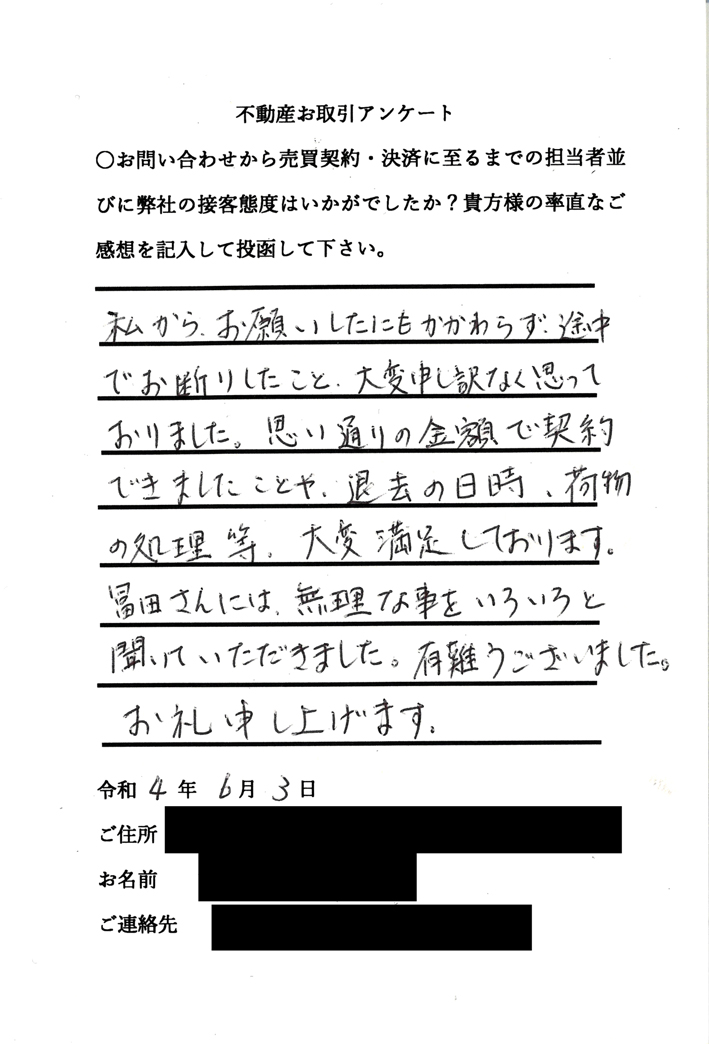 不動産お取引アンケート
〇お問い合わせから売買契約・決済に至るまでの担当者並
びに弊社の接客態度はいかがでしたか？貴方様の率直なご
感想を記入して投函して下さい。
私から、お願いしたにもかかわらず、途中
でお断りしたこと、大変申し訳なく思って
おりました。思い通りの金額で契約
できましたことや、退去の日時、荷物
の処理等、大変満足しております。
冨田さんには、無理な事をいろいろと
聞いていただきました。有難うございました。
お礼申し上げます。
令和 4 年 6 月 3 日
ご住所
お名前
ご連絡先